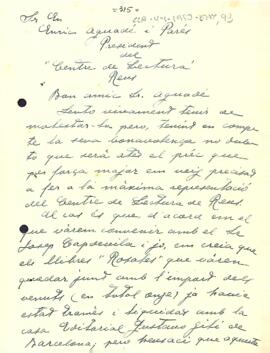 = 315 =
Sr. En
Enric Aguadé i Parés
President
del
"Centre de Lectura"
Reus
Bon amic Sr. Aguadé
Sento vivament tenir de
molestar-lo però, tenint en comp-
te la seva bonavolença no dubto
que serà atès el prec que
per força major em veig precisat
a fer a la màxima representació
del Centre de Lectura de Reus.
Al cas és que d'acord em el
que vàrem convenir amb el Sr.
Josep Capdevila i jo, em creia que
els llibres "Rosales" que vàrem
quedar junt amb l'import dels
venuts (en total onze) ja havia
estat tramès i liquidat amb la
casa Editorial Gustavo Gili de
Barcelona; però pensació que aquesta